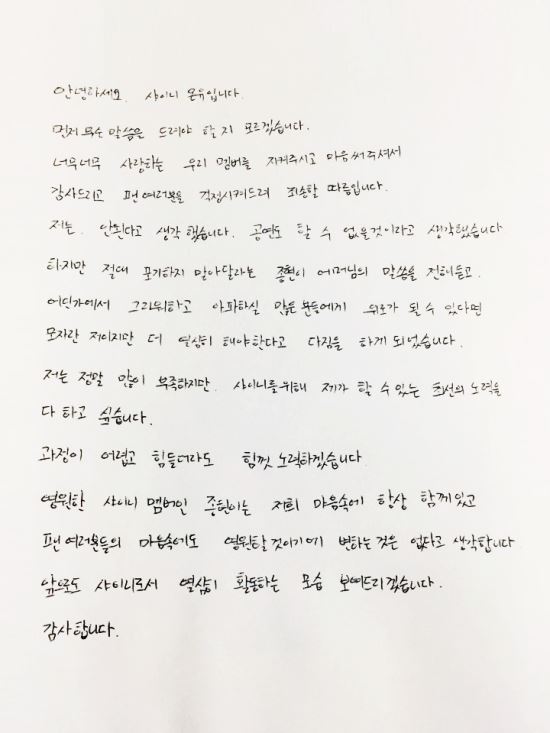 안녕하세요. 샤이니 온유입니다.
먼저 무슨 말씀을 드려야 할지 모르겠습니다.
너무너무 사랑하는 우리 멤버를 지켜주시고 마음써주셔서
감사드리고 팬여러분을 걱정시켜드려 죄송할 따름입니다.
저는. 안된다고 생각했습니다. 공연도 할 수 없을것이라고 생각했습니다
하지만 절대 포기하지 말아달라는 종현이 어머님의 말씀을 전해듣고.
어딘가에서 그리워하고 아파하실 많은분들에게 위로가 될 수 있다면
모자란 저이지만 더 열심히 해야한다고 다짐을 하게되었습니다.
저는 정말 많이 부족하지만. 샤이니를위해 제가 할 수 있는 최선의 노력을
다 하고 싶습니다.
과정이 어렵고 힘들더라도 힘껏 노력하겠습니다
영원한 샤이니 멤버인 종현이는 저희 마음속에 항상 함께있고
팬 여러분들의 마음속에도 영원할것이기에 변하는것은 없다고 생각합니다
앞으로도 샤이니로서 열심히 활동하는 모습 보여드리겠습니다.
감사합니다.